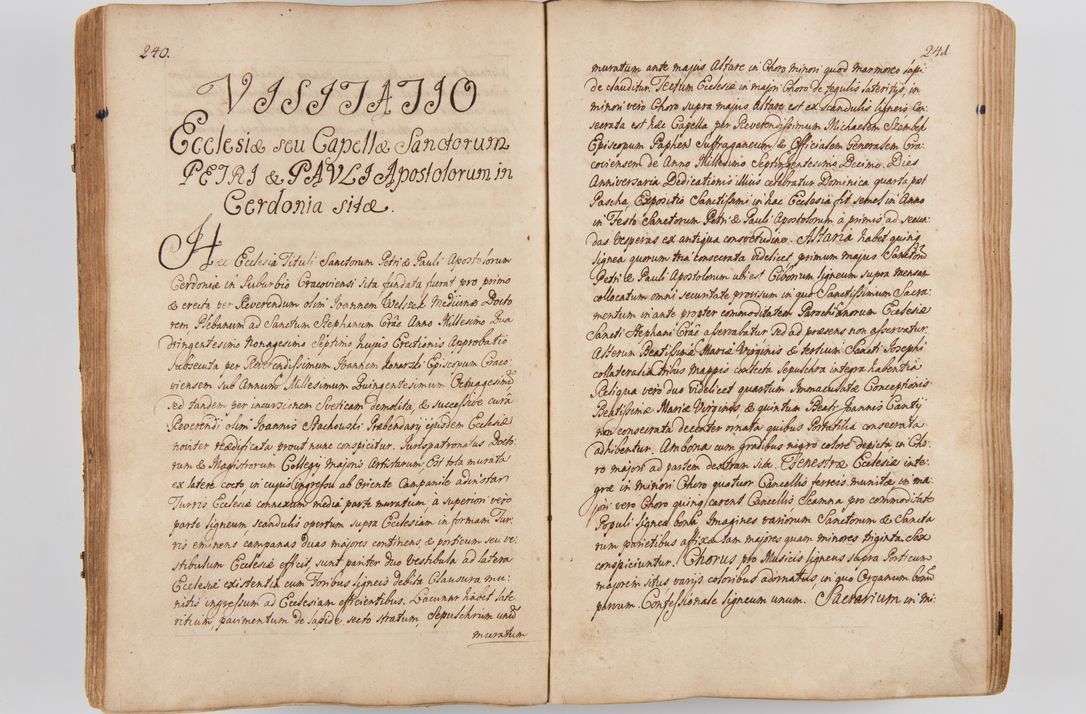 240.
VISITATIO
Ecclesiæ seu Capellæ Sanctorum
PETRI & PAVLI Apostolorum in
Cerdonia sitæ.
Hæc Ecclesia Tituli Sanctorum Petri & Pauli Apostolorum
Cerdoniæ in Suburbio Cracoviensi sita fundata fuerat pro primo
& erecta per Reverendum olim Joannem Welszek Medicinæ Docto
rem Plebanum ad Sanctum Stephanum Crãc Anno Millesimo Qua
dringentesimo Nonagesimo Septimo hujus Erectionis Approbatio
subsecuta per Reverendissimum Joannem Konarski Episcopum Craco:
viensem sub Annum Millesimum Quingentesimum Octuagesimũ
sed tandem per incursionem Sveticam demolita, & successive curâ
Reverendi olim Joannis Stachowski Præbendarij ejusdem Ecclesiæ
noviter reædificata prout nunc conspicitur. Juripatronatus Docto:
rum & Magistrorum Collegij Majoris Artistarum, Est tota murata
ex latere cocto in cujus ingressu ab Oriente Campanile ad instar
Turris Ecclesiæ connexum media parte muratum, à superiori verò
parte ligneum scandulis opertum supra Ecclesiam in formam Tur:
ris eminens campanas duas majores continens & porticum seu ve:
stibulum Ecclesiæ efficit, sunt pariter duo vestibula ad latera
Ecclesiæ existentia cum foribus ligneis debita Clausura mu:
nitis ingressum ad Ecclesiam efficientibus. Lacunar habet late
ritium, pavimentum de lapide secto stratum, Sepulchrum unũ
muratum
241
muratum ante majus Altare in Choro minori quod marmoreo lapi:
de clauditur. Tectum Ecclesiæ in majori Choro de tegulis lateritijs, in
minori vero Choro supra majus Altare est ex scandulis ligneis Con
secrata est hæc Capella per Reverendissimum Michaelem Szembek
Episcopum Paphen Suffraganeum & Officialem Generalem Cra:
coviensem de Anno Millesimo Septingentesimo Decimo. Dies
Anniversaria Dedicationis illius celebratur Dominica quarta post
Pascha, Expositio Sanctissimi in hac Ecclesia fit semel in Anno
in Festo Sanctorum Petri & Pauli Apostolorum à primis ad secun:
das Vesperas ex antiqua consvetudine. Altaria habet quinq
lignea quorum tria consecrata videlicet primum majus Sanctorũ
Petri & Pauli Apostolorum ubi est Ciborium ligneum supra mensam
collocatum omni securitate provisum in quo Sanctissimum Sacra:
mentum in ante propter commoditatem Parochianorum Ecclesiæ
Sancti Stephani Crãc asservabatur sed ad præsens non asservatur.
Alterum Beatissimæ Mariæ Virginis & tertium Sancti Josephi
collateralia tribus mappis contecta sepulchra integra habentia
Reliqua verò duo videlicet quartum Immaculatæ Conceptionis
Beatissimæ Mariæ Virginis & quintum Beati Joannis Cantij
non consecrata decenter ornata quibus Portatilia consecrata
adhibentur. Ambona cum gradibus nigro colore depicta in Cho:
ro majori ad partem dextram sita. Fenestræ Ecclesiæ inte:
græ in minori Choro quatuor Cancellis ferreis munitæ in ma:
jori vero Choro quinq carent Cancellis Scamna pro commoditate
Populi lignea bona Imagines variorum Sanctorum & Sancta
rum parietibus affixæ tam majores quam minores triginta sex
conspiciuntur. Chorus pro Musicis ligneus supra Porticum
majorem situs varijs coloribus adornatus in quo Organum bonũ
parvum. Confessionale ligneum unum. Sacrarium in mi: